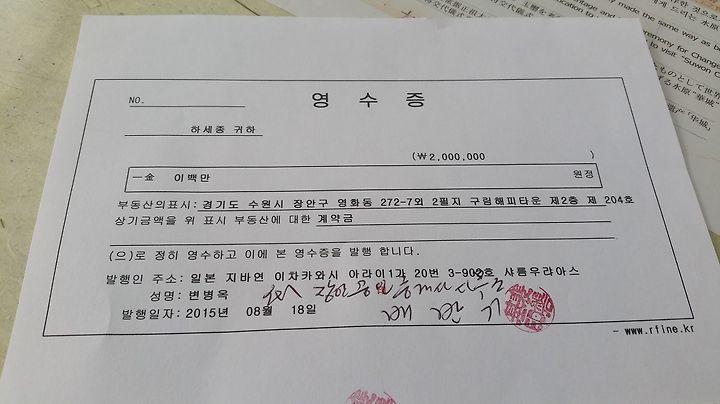 영 수 증
NO.
하세종 귀하
(₩2,000,000 )
一金 이백만 원정
부동산의표시: 경기도 수원시 장안구 영화동 272-7외 2필지 구림해피타운 제2층 제 204호
상기금액을 위 표시 부동산에 대한 계약금
(으)로 정히 영수하고 이에 본 영수증을 발행 합니다.
발행인 주소: 일본 지바연 이차카와시 아라이1가 20번 3-903호 샤름우라아스
성명: 변병옥
발행일자: 2015년 08월 18일
- www.rfine.kr
made the same way as
emony for Change
to visit "Suwon C